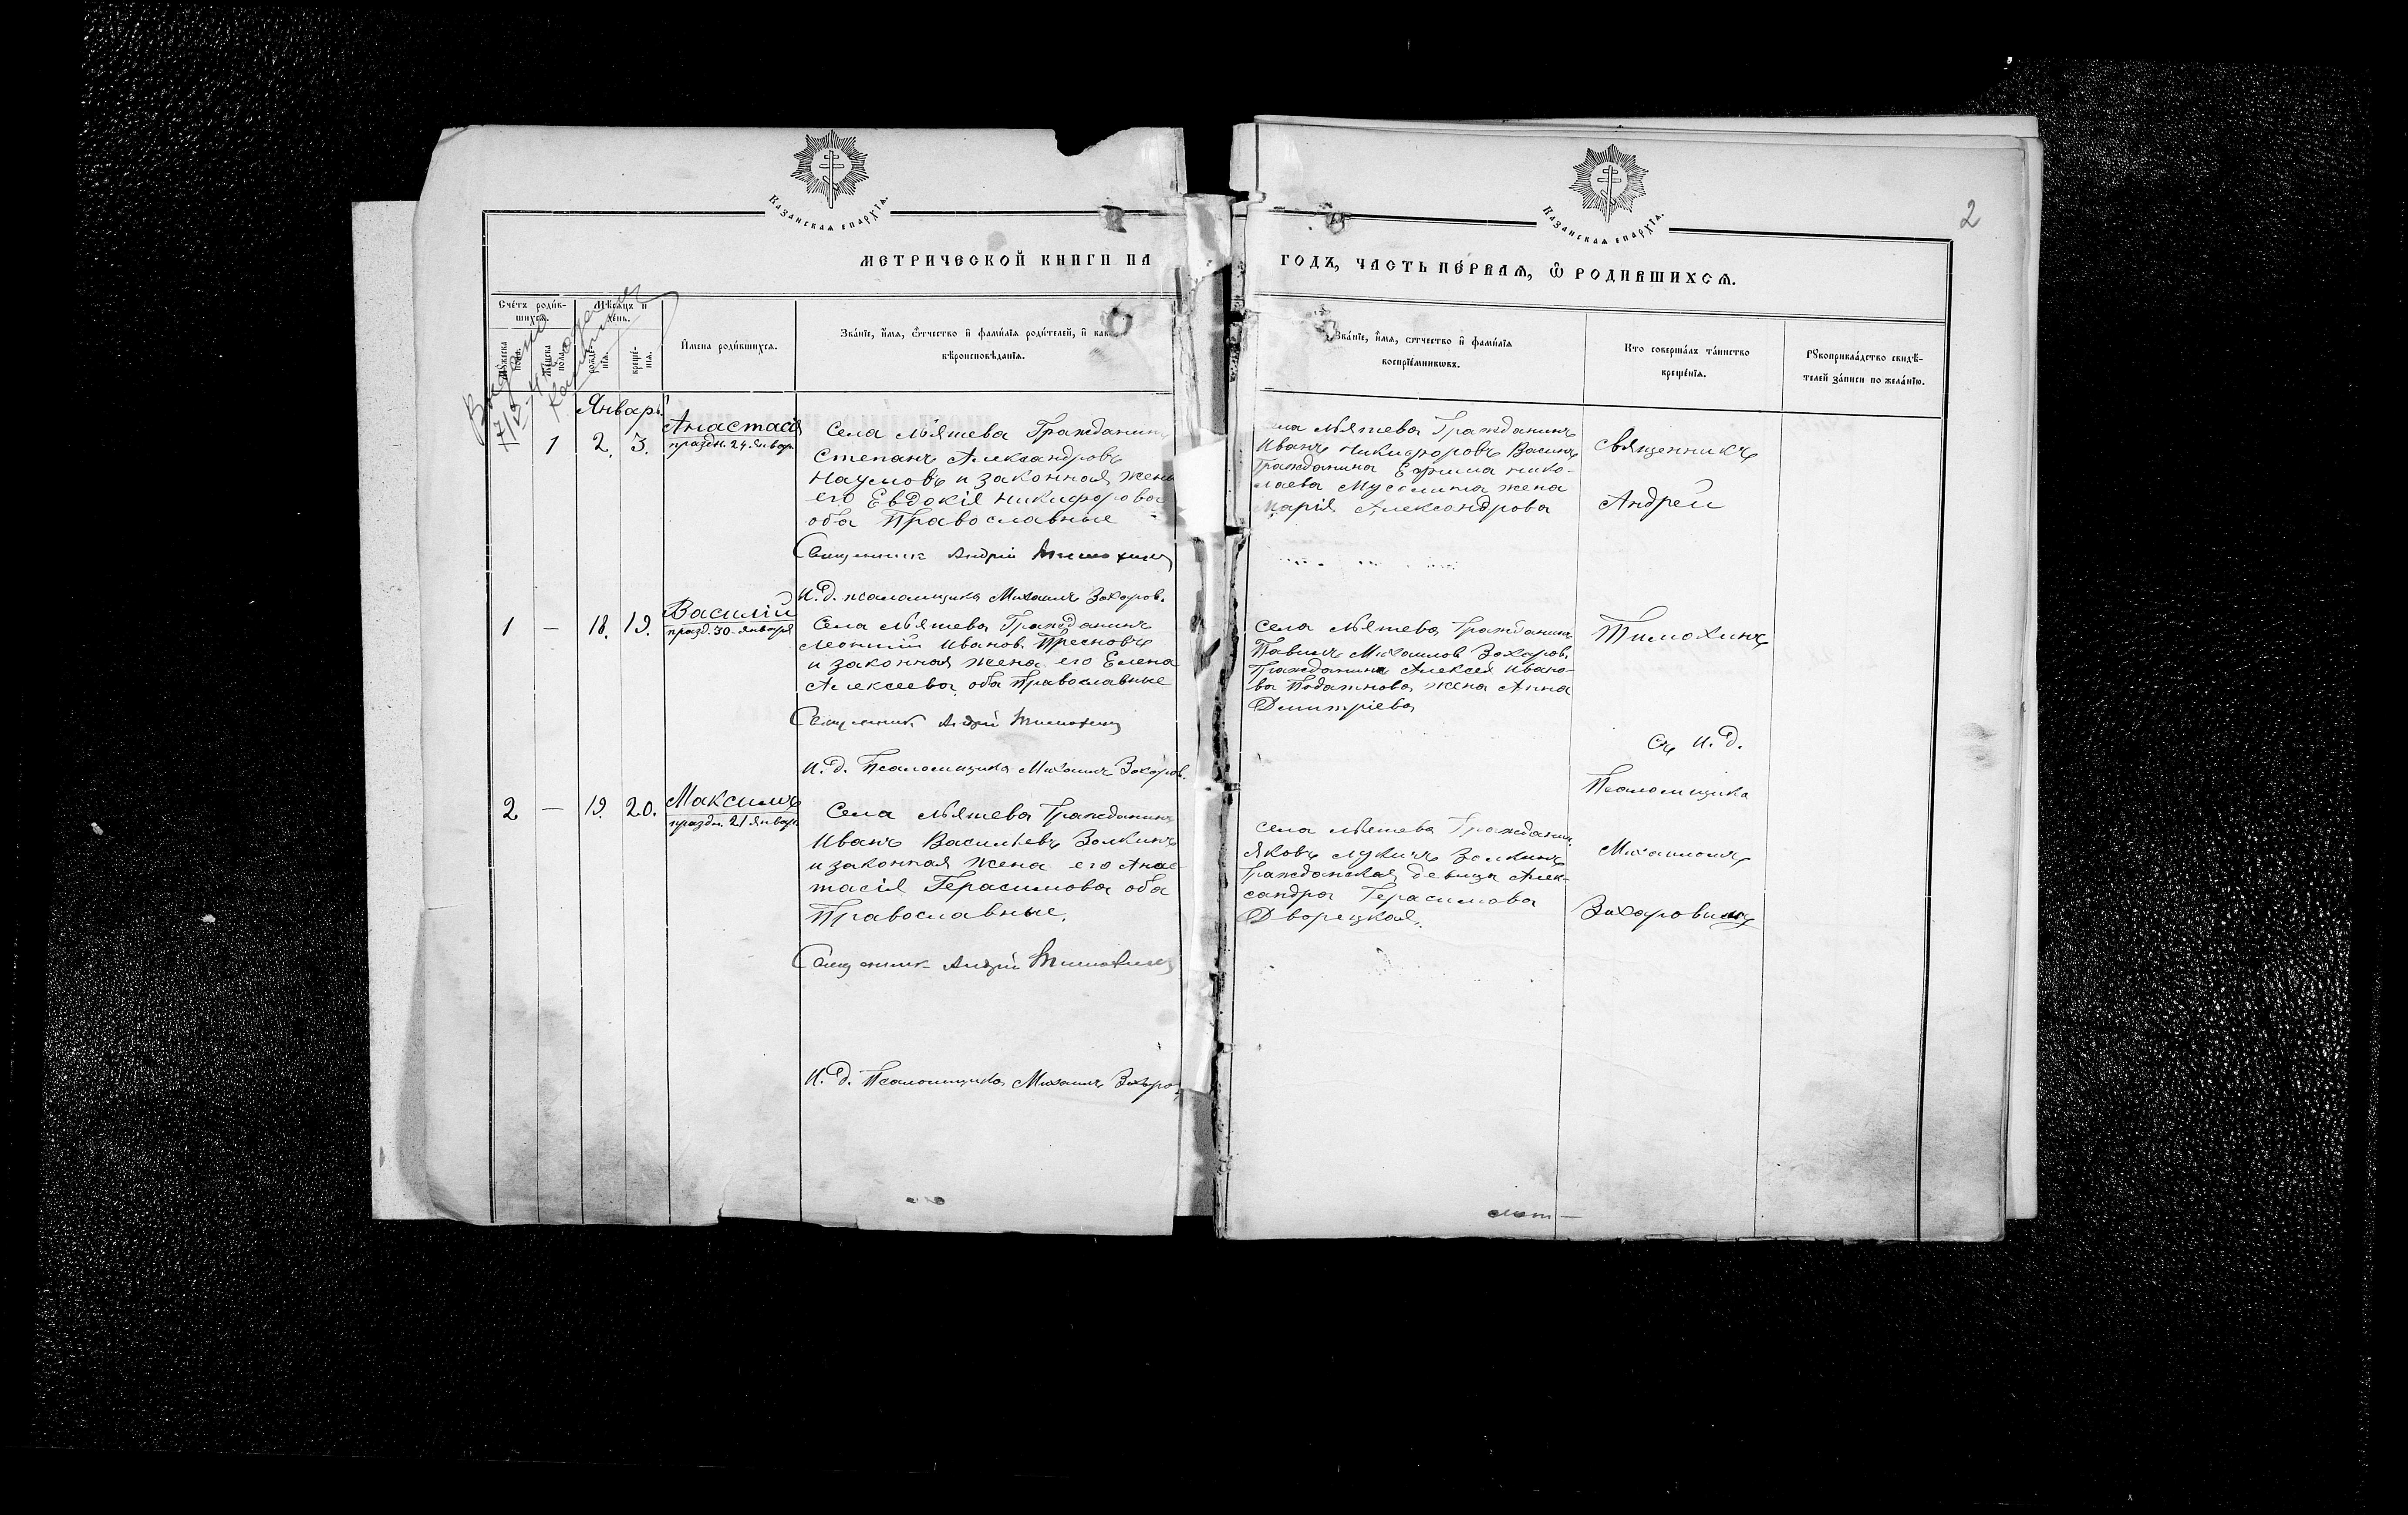 Казанская епархїа.
Казанская епархїа.
2
МЕТРИЧЕСКОЙ КНИГИ НА
ГОДЪ, ЧАСТЬ ПЕ́РВАѦ, Ѿ РОДИВШИХСѦ.
Счетъ роди́в-
шихсѧ.
Мѣсѧцъ и
де́нь.
Мꙋжеска пола.
Женска пола.
рожде-
нїѧ.
креще́-
нїѧ.
И҆мена роди́вшихсѧ.
Зва́нїе, и҆́мѧ, ѻ҆́тчество и҆ фами́лїѧ роди́телей, и҆
вѣроисповѣ́данїѧ.
Зва́нїе, и҆́мѧ, ѻ҆́тчество и҆ фами́лїѧ
воспрїе́мниковъ.
Кто соверша́лъ та́инство
креще́нїѧ.
Рꙋкоприкла́дство свидѣ́-
телей за́писи по жела́нїю.
Январь
1 2. 3.
Анастасія
праздн. 24. январ.
Села Мѣшева Гражданинъ
Степанъ Александровъ
Наумовъ и законная жена
его Евдокія Никифорова
оба Православные
Священник Андрій Тимохинъ
И. д. псаломщика Михаилъ Захаров.
Мѣшева Гражданинъ
Иванъ Никифоровъ Васинъ
Гражданина Ефима Нико-
лаева жена
Марія Александрова
Священникъ
Андрей
1 — 18. 19.
Василій
празд. 30 января
Села Мѣшева Гражданинъ
Леонтій Иванов Пресновъ
и законная жена его Елена
Алексеева оба Православные
Священник Андрій Тимохинъ
И. д. Псаломщика Михаилъ Захаров.
Села Мѣшева Гражданинъ
Павелъ Михаилов Захаров,
Гражданина Алексея Ивано-
ва жена Анна
Димитріева
Тимохинъ
Съ и. д.
Псаломщика
2 — 19. 20.
Максимъ
праздн. 21 январ.
Села Мѣшева Гражданинъ
Иванъ Васильевъ Золкинъ
и законная жена его Анас-
тасія Герасимова оба
Православные.
Священник Андрій Тимохинъ
И. д. Псаломщика Михаилъ Захаро
Села Мѣшева Гражданин.
Яковъ Лукичъ Золкинъ
Гражданская девица Алек-
сандра Герасимова
Дворецкая.
Михаиломъ
Захаровымъ